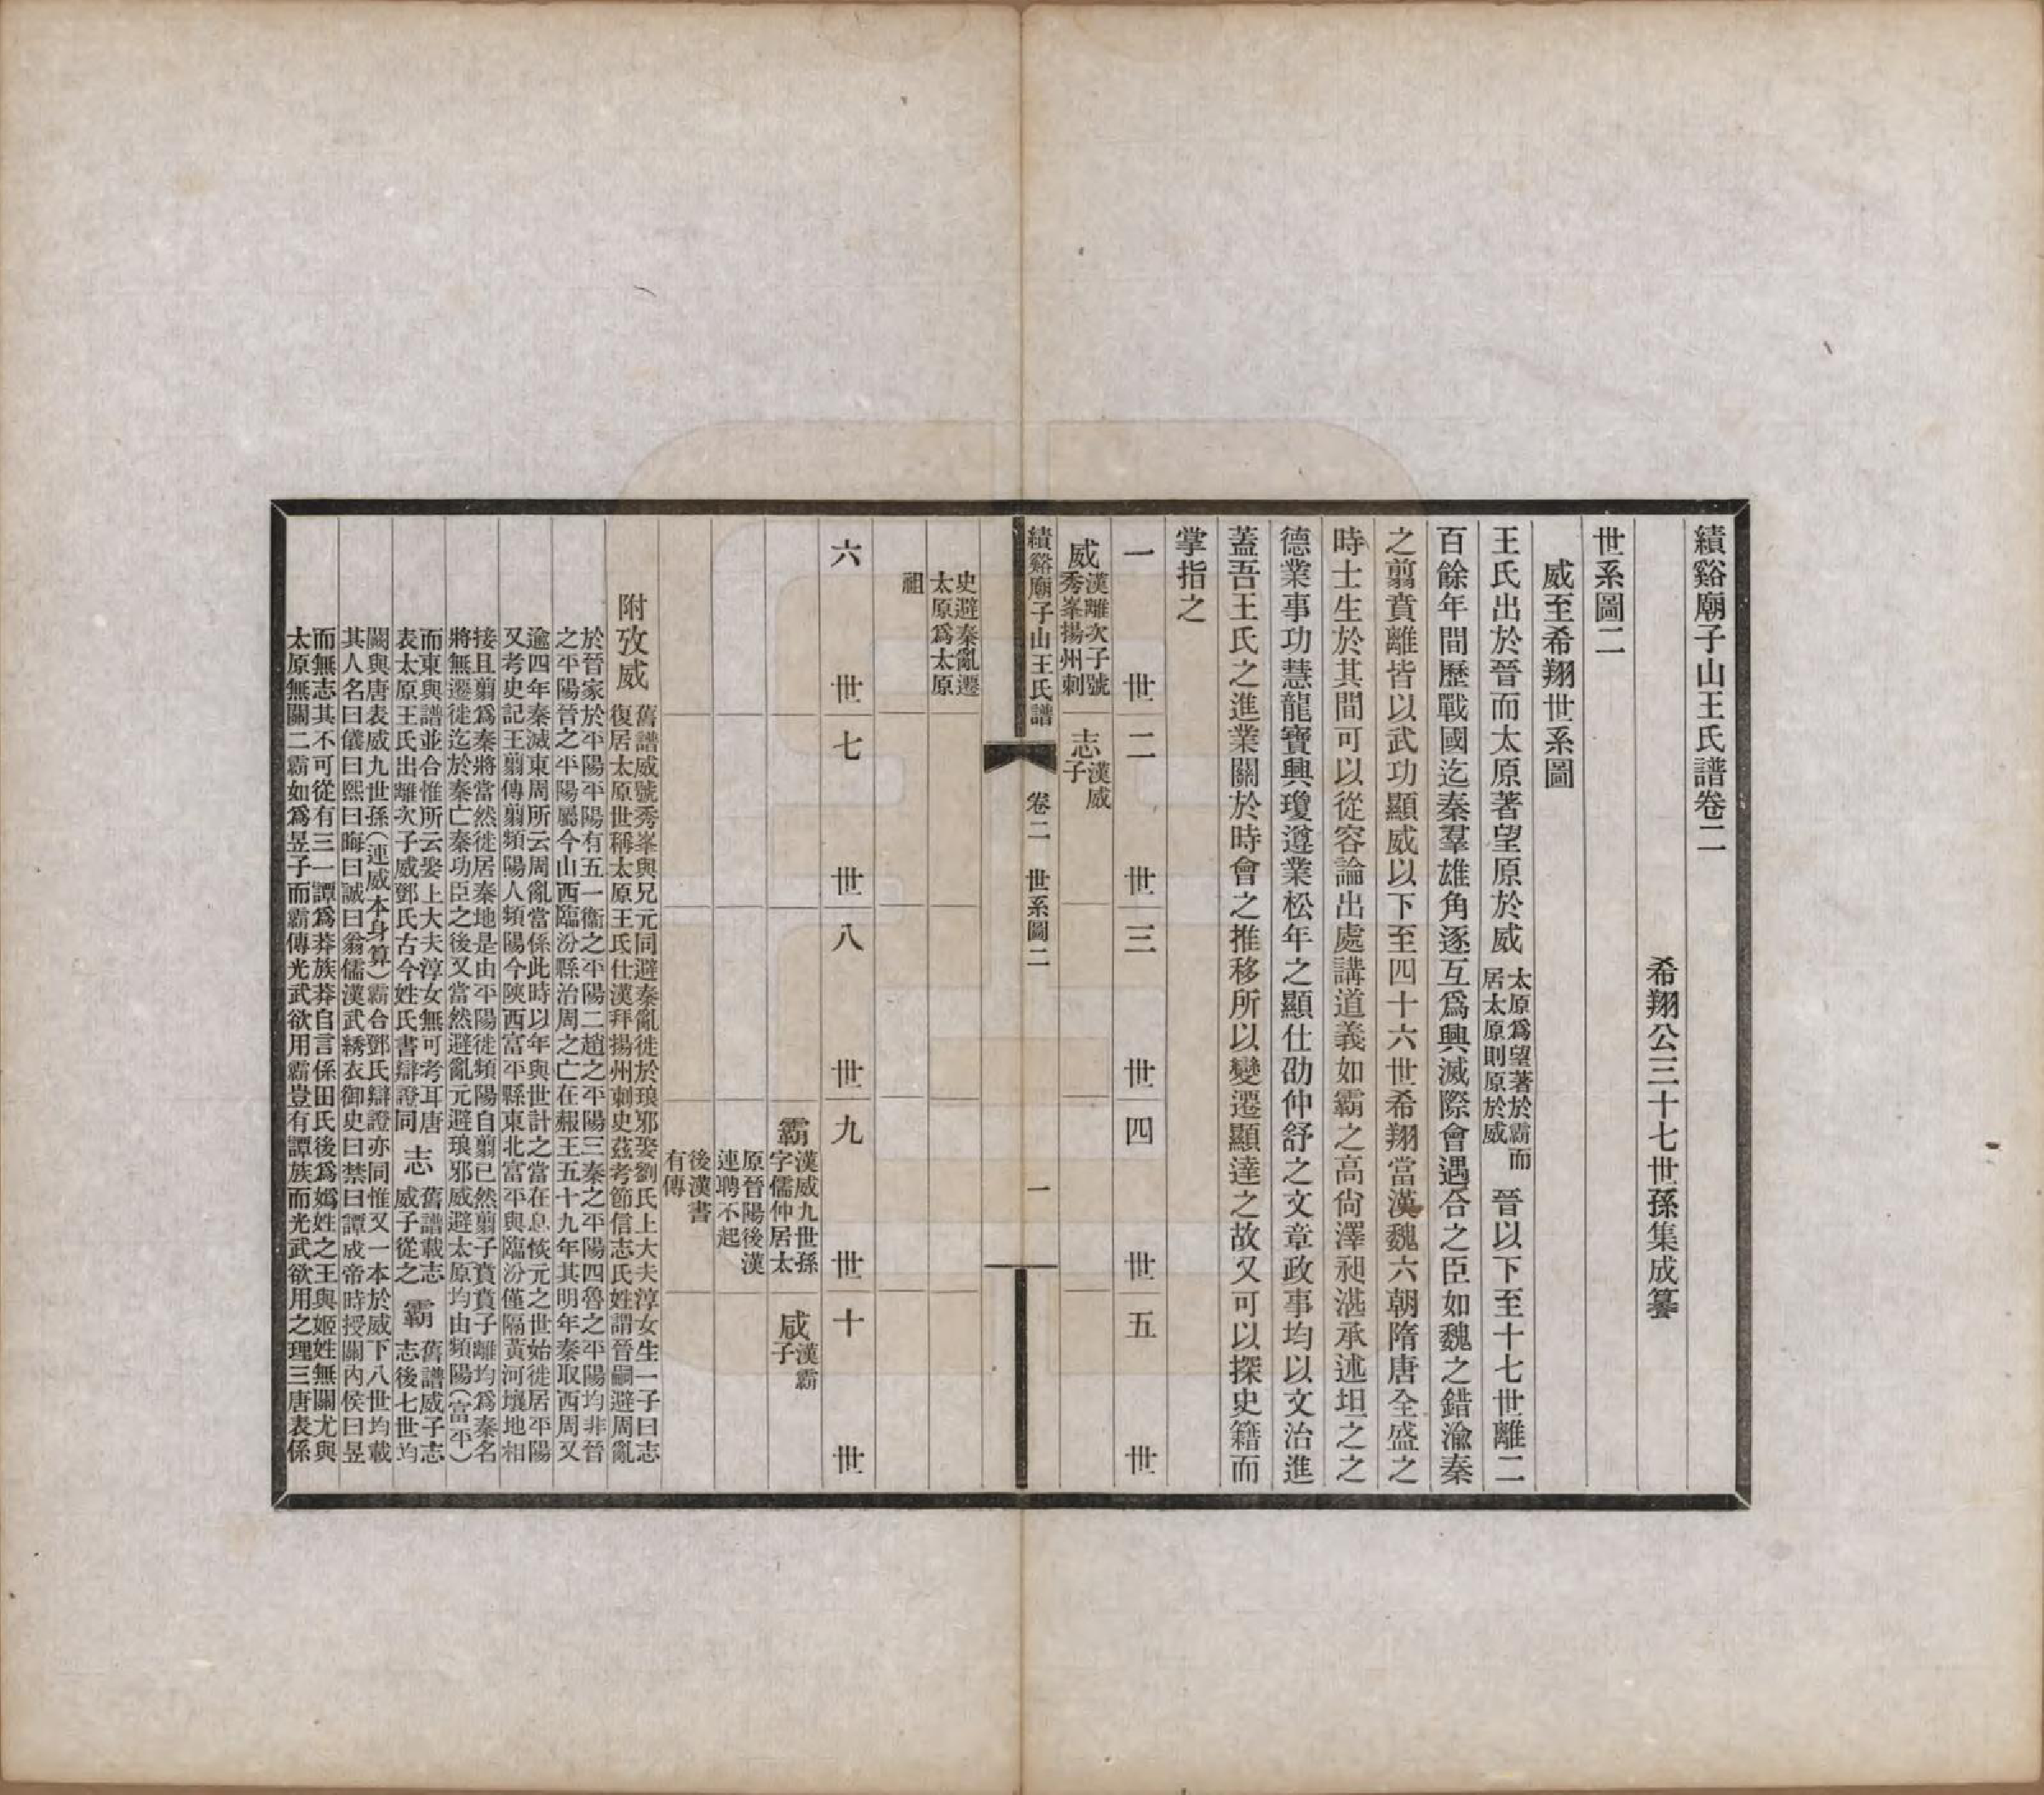 績谿廟子山王氏譜卷二
希翔公三十七世孫集成纂
世系圖二
威至希翔世系圖
王氏出於晉而太原著望原於威
太原爲望著於霸而
居太原則原於威
晉以下至十七世離二
百餘年間歷戰國迄秦羣雄角逐互爲興滅際會遇合之臣如魏之錯渝秦
之翦賁離皆以武功顯威以下至四十六世希翔當漢魏六朝隋唐全盛之
時士生於其間可以從容論出處講道義如霸之高尙澤昶湛承述坦之之
德業事功慧龍寶興瓊遵業松年之顯仕劭仲舒之文章政事均以文治進
蓋吾王氏之進業關於時會之推移所以變遷顯達之故又可以探史籍而
掌指之
一世二世三世四世五世
威
漢離次子號
秀峯揚州刺
志
漢威
子
績谿廟子山王氏譜 卷二 世系圖二 一
史避秦亂遷
太原爲太原
祖
六世七世八世九世十世
霸
漢威九世孫
字儒仲居太
原晉陽後漢
連聘不起
後漢書
有傳
咸
漢霸
子
附攷威
舊譜威號秀峯與兄元同避秦亂徙於琅邪娶劉氏上大夫淳女生一子曰志
復居太原世稱太原王氏仕漢拜揚州刺史茲考節信志氏姓謂晉嗣避周亂
於晉家於平陽平陽有五一衞之平陽二趙之平陽三秦之平陽四魯之平陽均非晉
之平陽晉之平陽屬今山西臨汾縣治周之亡在赧王五十九年其明年秦取西周又
逾四年秦滅東周所云周亂當係此時以年與世計之當在息恢元之世始徙居平陽
又考史記王翦傳翦頻陽人頻陽今陝西富平縣東北富平與臨汾僅隔黃河壤地相
接且翦爲秦將當然徙居秦地是由平陽徙頻陽自翦已然翦子賁賁子離均爲秦名
將無遷徙迄於秦亡秦功臣之後又當然避亂元避琅邪威避太原均由頻陽(富平)
而東與譜並合惟所云娶上大夫淳女無可考耳唐
表太原王氏出離次子威鄧氏古今姓氏書辯證同
志
舊譜載志
威子從之
霸
舊譜威子志
志後七世均
闕與唐表威九世孫(連威本身算)霸合鄧氏辯證亦同惟又一本於威下八世均載
其人名曰儀曰熙曰晦曰誠曰翁儒漢武綉衣御史曰禁曰譚成帝時授關內侯曰昱
而無志其不可從有三一譚爲莽族莽自言係田氏後爲嬀姓之王與姬姓無關尤與
太原無關二霸如爲昱子而霸傳光武欲用霸豈有譚族而光武欲用之理三唐表係